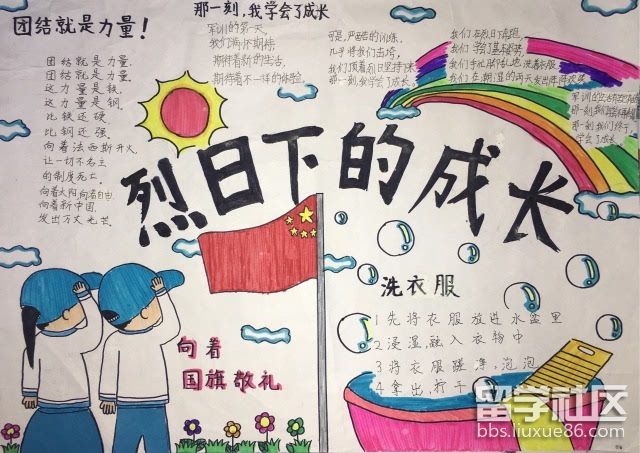 团结就是力量!
团结就是力量
团结就是力量
这力量是铁,
这力量是钢.
比铁还硬
比钢还强.
向着法西斯开火
让一切不名主
的制度死亡.
向着太阳,向着自由
向着新中国
发出万丈光芒.
那一刻,我学会了成长
军训的第一天
我们满怀期待
期待着新的生活
期待着不一样的体验.
可是,严酷的训练
几乎将我们击垮
我们顶着烈日坚持下来
那一刻我学会了成长.
我们
我们学
学会了成长
烈日下的成长
洗衣服
1 先将衣服放进水盆里
2 浸湿,融入衣物中
3 将衣服蹂净,泡泡
4 拿出,拧干
向着
国旗敬礼
留学社区
bbs.liuxue86.com